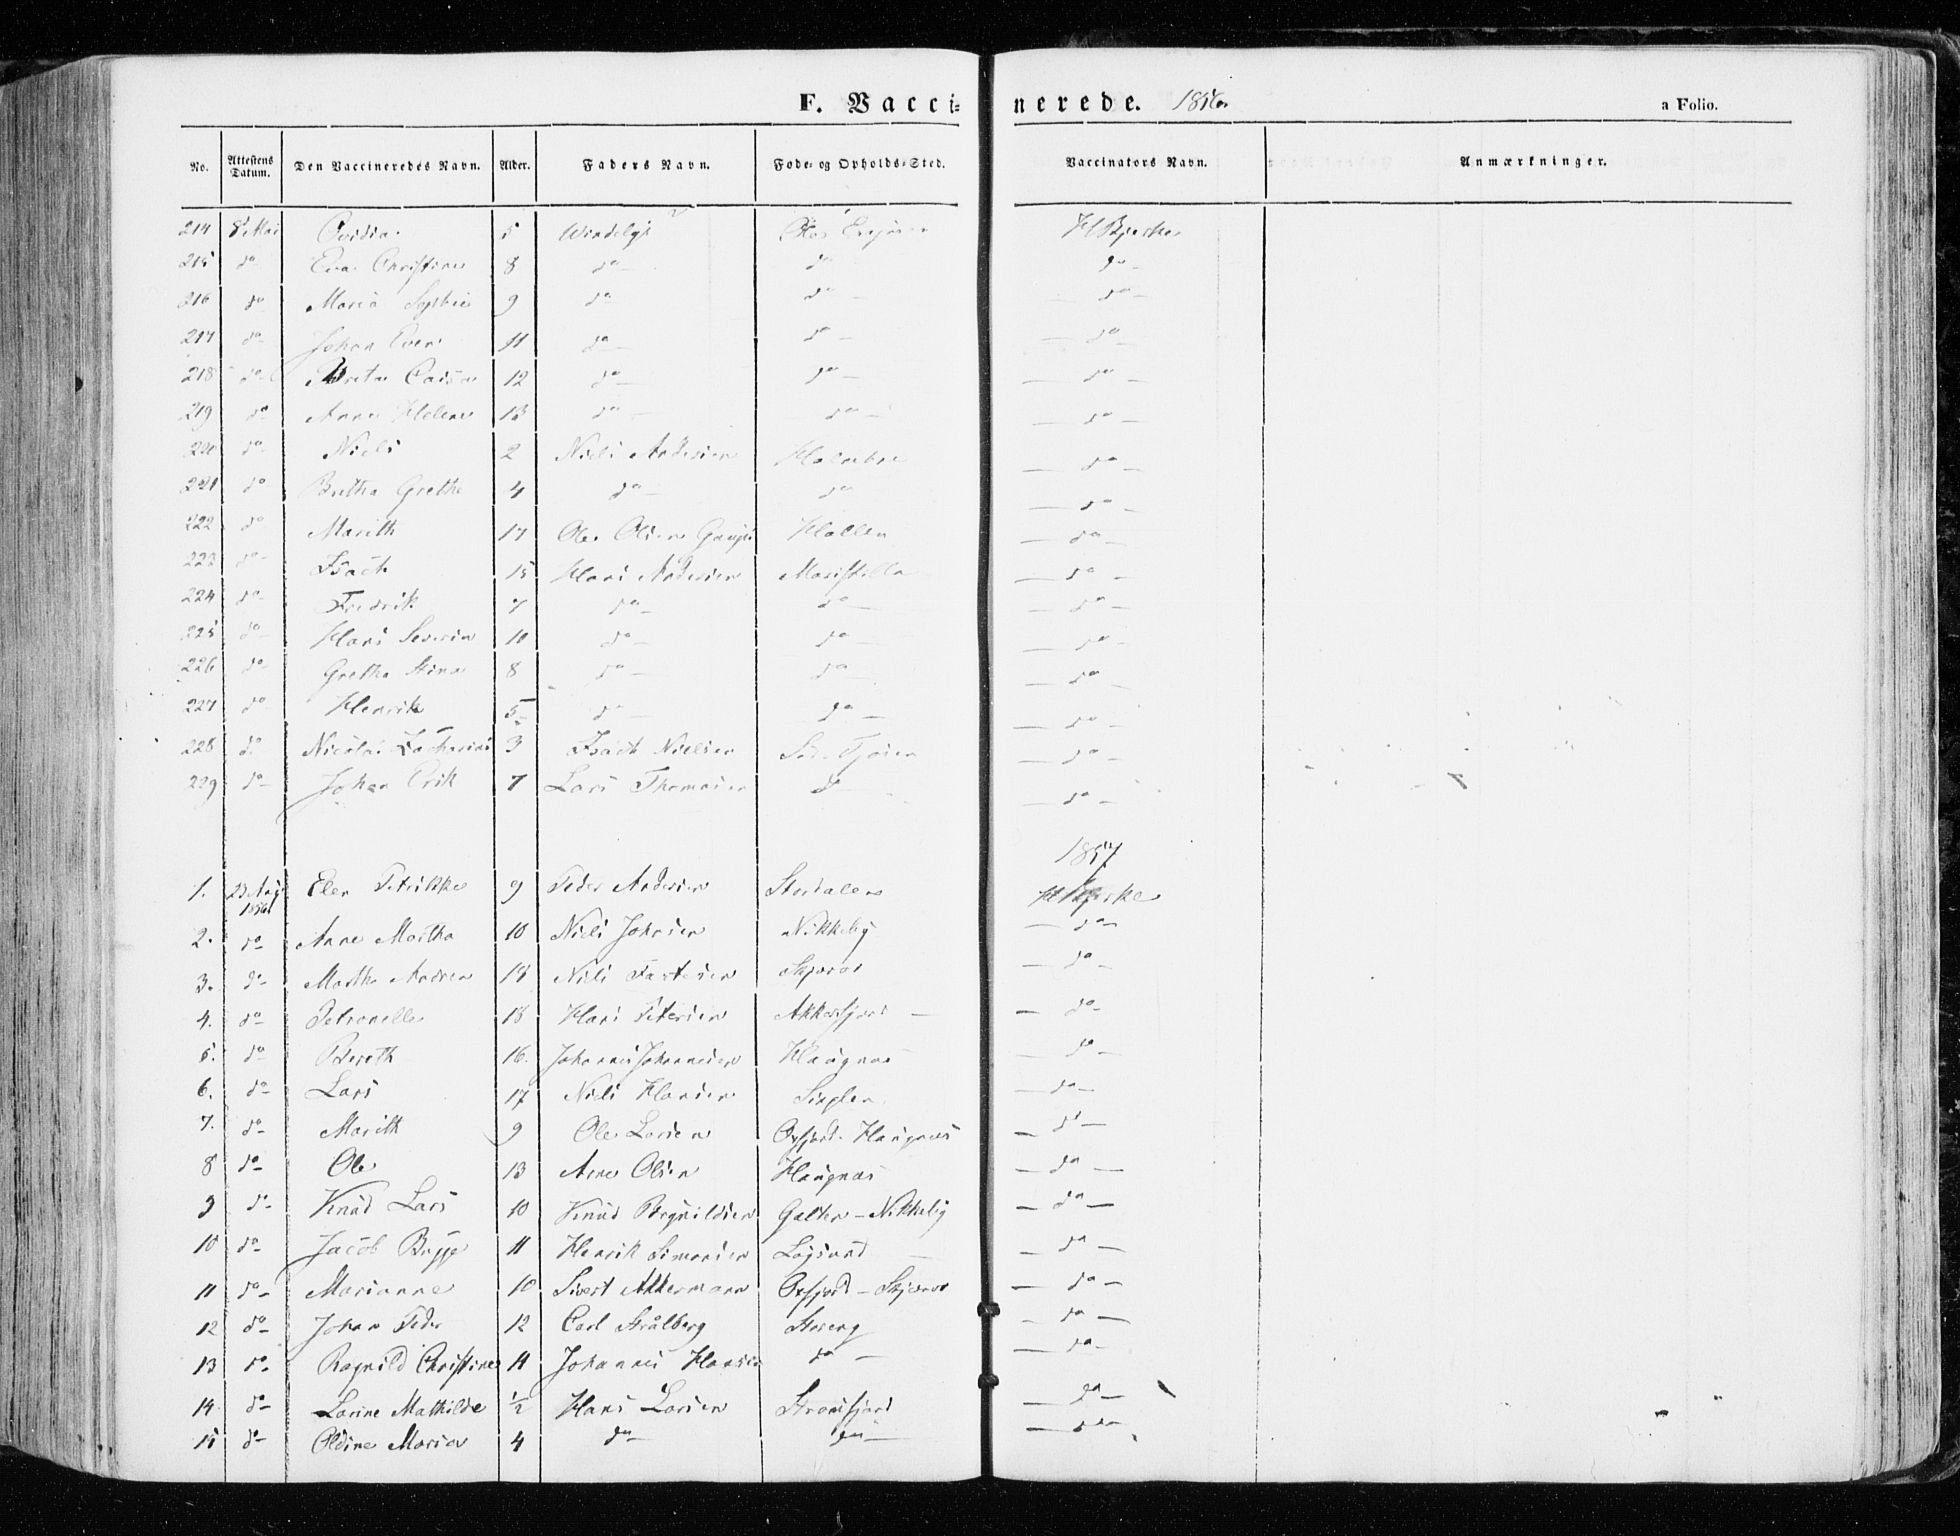 F. Vaccinerede. 1856. a Folio.
No. Attestens Datum. Den Vaccineredes Navn. Alder. Faders Navn. Føde- og Opholds-Sted. Vaccinators Navn. Anmærkninger.
214 8de Mai 5 H Bjerke
215 do Eva Christine 8 do do do
216 do Maria Sophie 9 do do do
217 do Johan Ever 11 do do do
218 do 12 do do do
219 do Anne Helene 13 do do do
220 do Niels 2 Niels Andersen do
221 do Bertha Grethe 4 do do do
222 do Marith 17 Ole Olsen do
223 do Isach 15 Hans Andersen do
224 do Fredrik 7 do do do
225 do Hans Severin 10 do do do
226 do Grethe Stina 8 do do do
227 do Henrik 5 do do do
228 do Nicolai Zacharias 3 Isach Nielsen do
229 do Johan Erik 7 Lars Thomasen do do
1857
1. 23 Aug 1856 Elen Petrikke 9 Peder Andersen Stordalen H Bjerke
2. do Anne Martha 10 Niels Johnsen Nikkeby do
3. do Martha Andrea 18 Niels Fastesen Skjervø do
4. do Petronelle 18 Hans Petersen Akkarfjord do
5. do Bereth 16. Johannes Johannesen Haugnæs do
6. do Lars 17 Niels Hansen do
7. do Marith 9 Ole Larsen Oxfjord - Haugnæs do
8 do Ole 13 Arne Olsen Haugnæs do
9 do Knud Lars 10 Knud Bergnildsen - Nikkeby do
10 do Jacob Bugge 11 Henrik Simonsen Løgsund do
11 do Marianne 10 Sivert Akkermann Oxfjord - Skjervø do
12 do Johan Peder 12 Carl Strålberg do
13 do Ragnild Christine 11 Johannes Hansen do do
14 do Lorine Mathilde 1/2 Hans Larsen Straumfjord do
15 do Oldine Maria 4 do do do